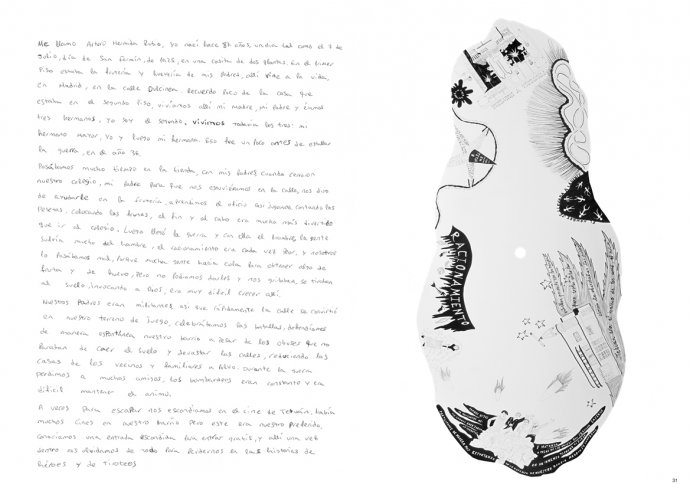 Me llamo Arturo Hermida Rubio, yo nací hace 87 años, un día tal como el 7 de
Julio, día de San Fermín, de 1925, en una casita de dos plantas. En el primer
Piso estaba la frutería y huevería de mis padres, allí vine a la vida,
en Madrid, en la calle Dulcinea. Recuerdo Poco de la casa que
estaba en el segundo Piso, vivíamos allí mi madre, mi Padre y éramos
tres hermanos. Yo soy el segundo. Vivimos todavía los tres: mi
hermano mayor, Yo y luego mi hermana. Eso fue un Poco antes de estallar
la guerra, en el año 36.
Pasábamos mucho tiempo en la tienda, con mis Padres cuando cerraron
nuestro colegio, mi Padre Para que nos estuviéramos en la calle, nos dijo
de ayudarle en la frutería aprendimos el oficio así jugando, contando las
Pesetas, colocando las frutas, al fin y al cabo era mucho más divertido
que ir al colegio. Luego llegó la guerra y con ella el hambre, la gente
sufría mucho del hambre, el racionamiento era cada vez Peor, y nosotros
lo Pasábamos mal, Porque mucha gente hacía cola Para obtener algo de
fruta y de huevo, Pero no Podíamos darles y nos gritaban, se tiraban
al suelo, invocando a Dios, era muy difícil crecer allí.
Nuestros Padres eran militantes así que rápidamente la calle se convirtió
en nuestro terreno de juego, celebrábamos las batallas, defendíamos
de manera espontánea nuestro barrio a Pesar de los obuses que no
Paraban de caer al suelo y devastar las calles, reduciendo las
casas de los vecinos y familiares a Polvo. Durante la guerra
Perdimos a muchos amigos, los bombardeos eran constante y era
difícil mantener el ánimo.
A veces Para escapar nos escondíamos en el cine de Tetuán, había
muchos cines en nuestro barrio Pero este era nuestro Preferido,
conocíamos una entrada escondida Para entrar gratis, y allí una vez
dentro nos olvidamos de todo Para Perdernos en las historias de
héroes y de tiroteos
RACIONAMIENTO
31